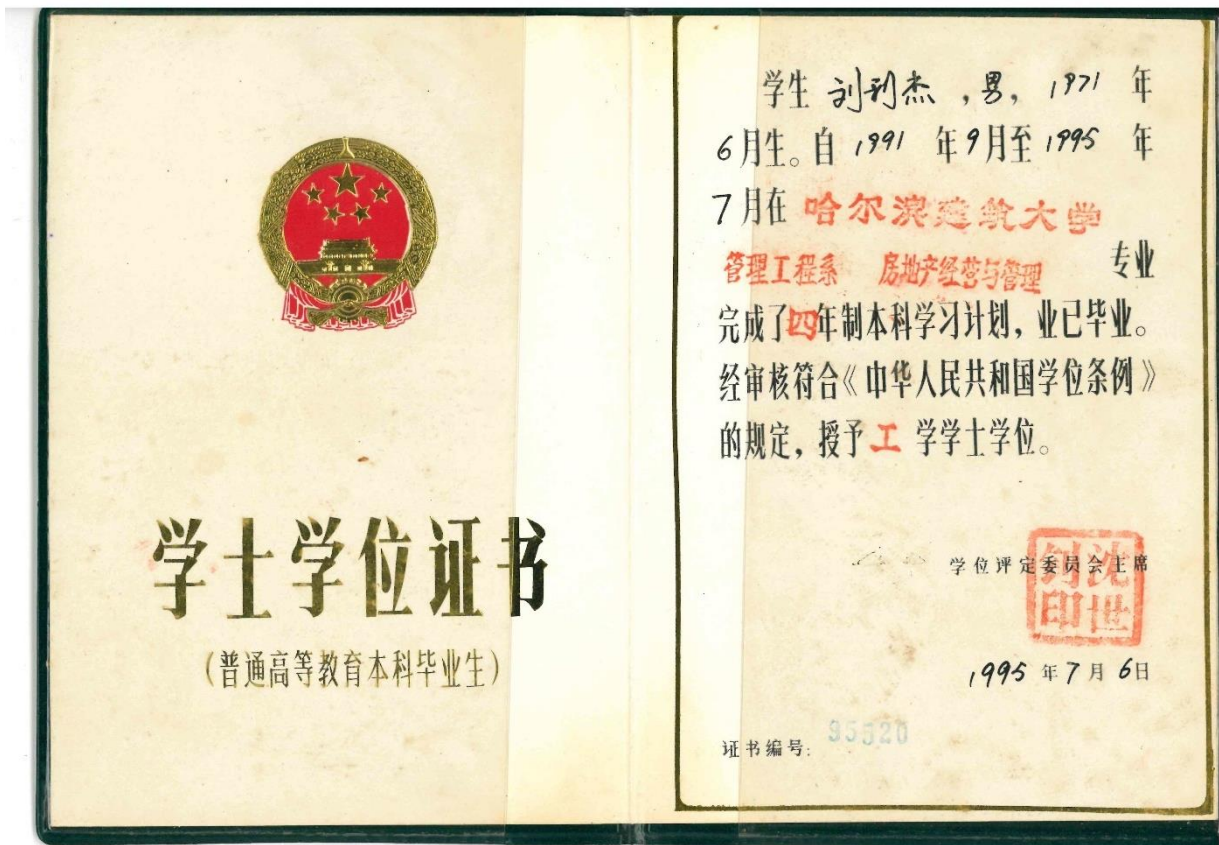 学士学位证书
(普通高等教育本科毕业生)
学生 刘利杰 ,男, 1971 年
6月生。自 1991 年9月至1995 年
7月在 哈尔滨建筑大学
管理工程系 房地产经营与管理 专业
完成了四年制本科学习计划,业已毕业。
经审核符合《中华人民共和国学位条例》
的规定,授予 工 学学士学位。
学位评定委员会主席
沈世钊印
1995 年7月6日
证书编号: 95520